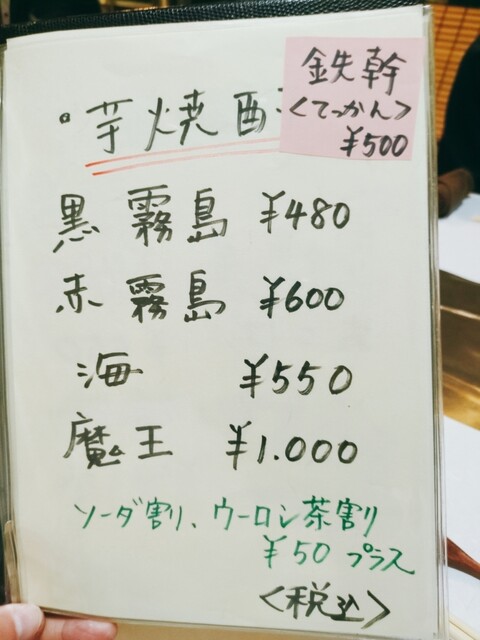 鉄幹
<てっかん>
¥500
・芋焼酎
黒霧島 ¥480
赤霧島 ¥600
海 ¥550
魔王 ¥1.000
ソーダ割り、ウーロン茶割り
¥50 プラス
<税込>